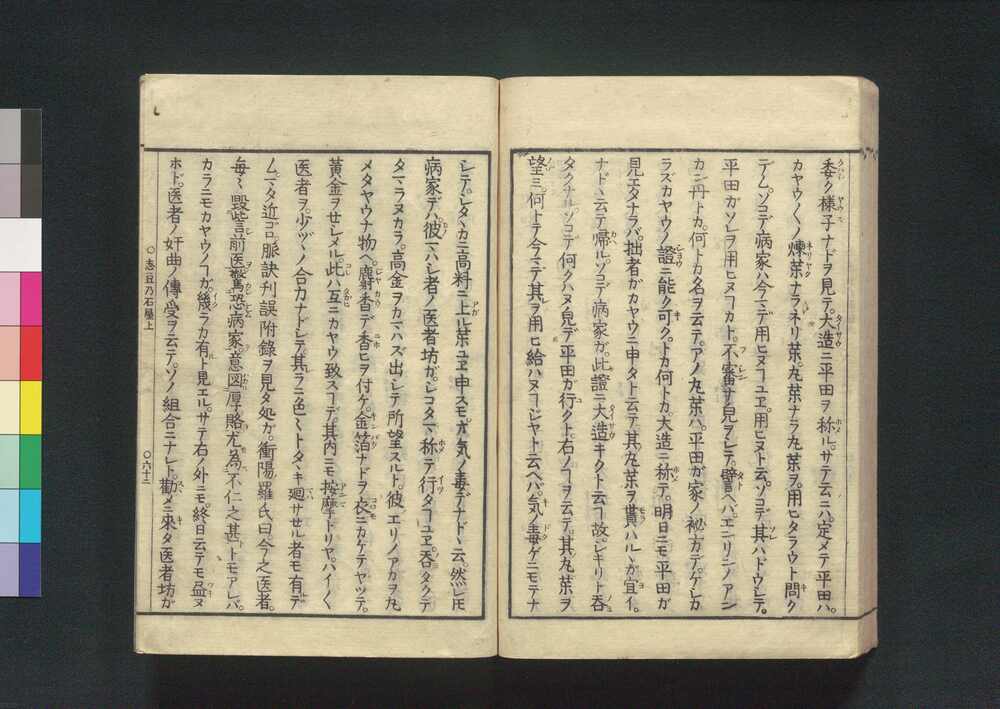 委ク様子ナドヲ見テ。大造ニ平田ヲ称ル。サテ云ニハ。定メテ平田ハ。
カヤウ〱ノ煉薬ナラネリ薬。丸薬ナラ丸薬ヲ。用ヒタラウト問ク
デム。ソコデ病家ハ今マデ用ヒヌコユヱ。用ヒヌト云。ソコデ其ハドウシテ。
平田ガソレヲ用ヒヌコカト。不審サ見タシテ。譬ヘバエンリンノアン
カン丹トカ。何トカ名ヲ云テ。アノ丸薬ハ。平田ガ家ノ秘方デ。ケシカ
ラズカヤウノ證ニ能ク可クトカ何トカ。大造ニ称テ。明日ニモ平田ガ
見エタナラバ。拙者ガカヤウニ申タト云テ其丸薬ヲ貰ハルヽガ宜イ。
ナドヽ云テ帰ル。ソコデ病家ガ。此證ニ大造キクト云コ故。シキリト呑
タクナル。ソコデ何クハヌ皃デ平田ガ行クト。右ノコヲ云テ。其丸薬ヲ
望ミ。何トテ今マデ其ヲ用ヒ給ハヌコジヤト云ヘバ。気ノ毒ゲニモテナ
シテ。シタヽカニ高料ニ上ル薬ユヱ申スモ。オ気ノ毒デナドヽ云。然レ𪜈
病家デハ。彼一ハシ者ノ医者坊ガ。シコタマ称テ行タコユヱ。呑タクテ
タマラヌカラ。高金ヲカマハズ出シテ所望スルト。彼エリノアカヲ丸
メタヤウナ物ヘ。麝香デ香ヒヲ付ケ。金箔ナドヲ衣ニカケテヤツテ。
黄金ヲセシメル。此ハ互ニカヤウ致スコデ其内ニモ按摩ドリヤハイ〱
医者ヲ。少ヅヽノ合力ナドシテ其ラニ色〻トタヽキ廻サセル者モ有デ
ム。マタ近ゴロ脈訣刊誤附録ヲ見タ処ガ。衝陽羅氏曰。今之医者。
毎〻毀訾前医驚恐病家。意図厚賂尤為不仁之甚トモアレバ。
カラニモカヤウノコガ。幾ラカ有ト見エル。サテ右ノ外ニモ。終日云テモ尽ヌ
ホド。医者ノ奸曲ノ傳受ヲ云テ。ソノ組合ニナレト。勸メニ来タ医者坊ガ
○志豆乃石屋上
○六十三